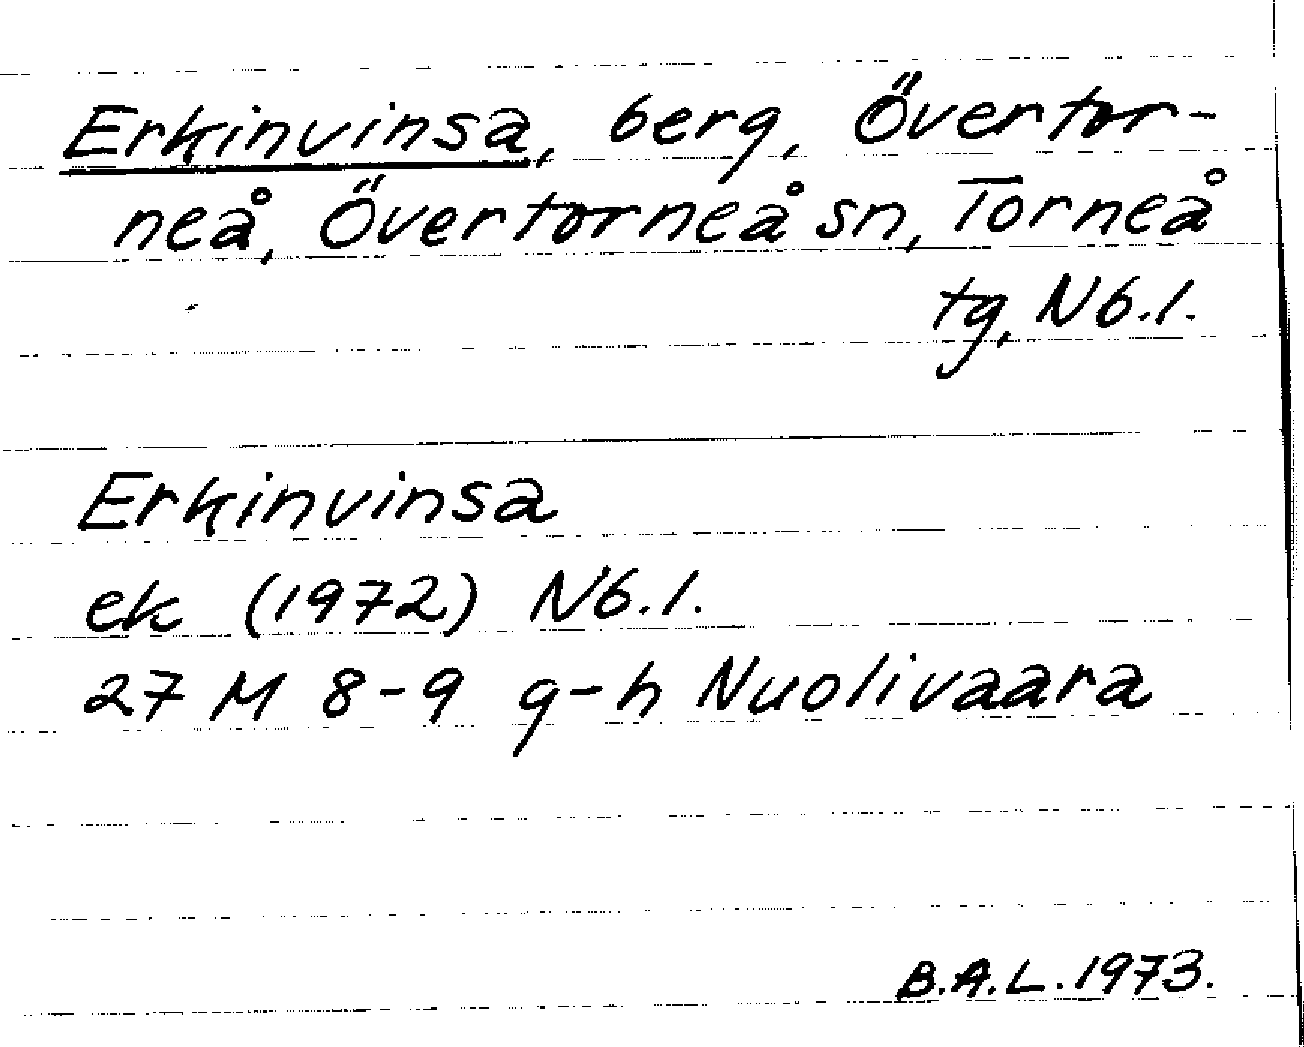 Erkinvinsa, berg, Övertor-
neå, Övertorneå sn, Torneå
tg, Nb.l.
Erkinvinsa
ek (1972) Nb.l.
27 M 8-9 g-h Nuolivaara
B.A.L. 1973.